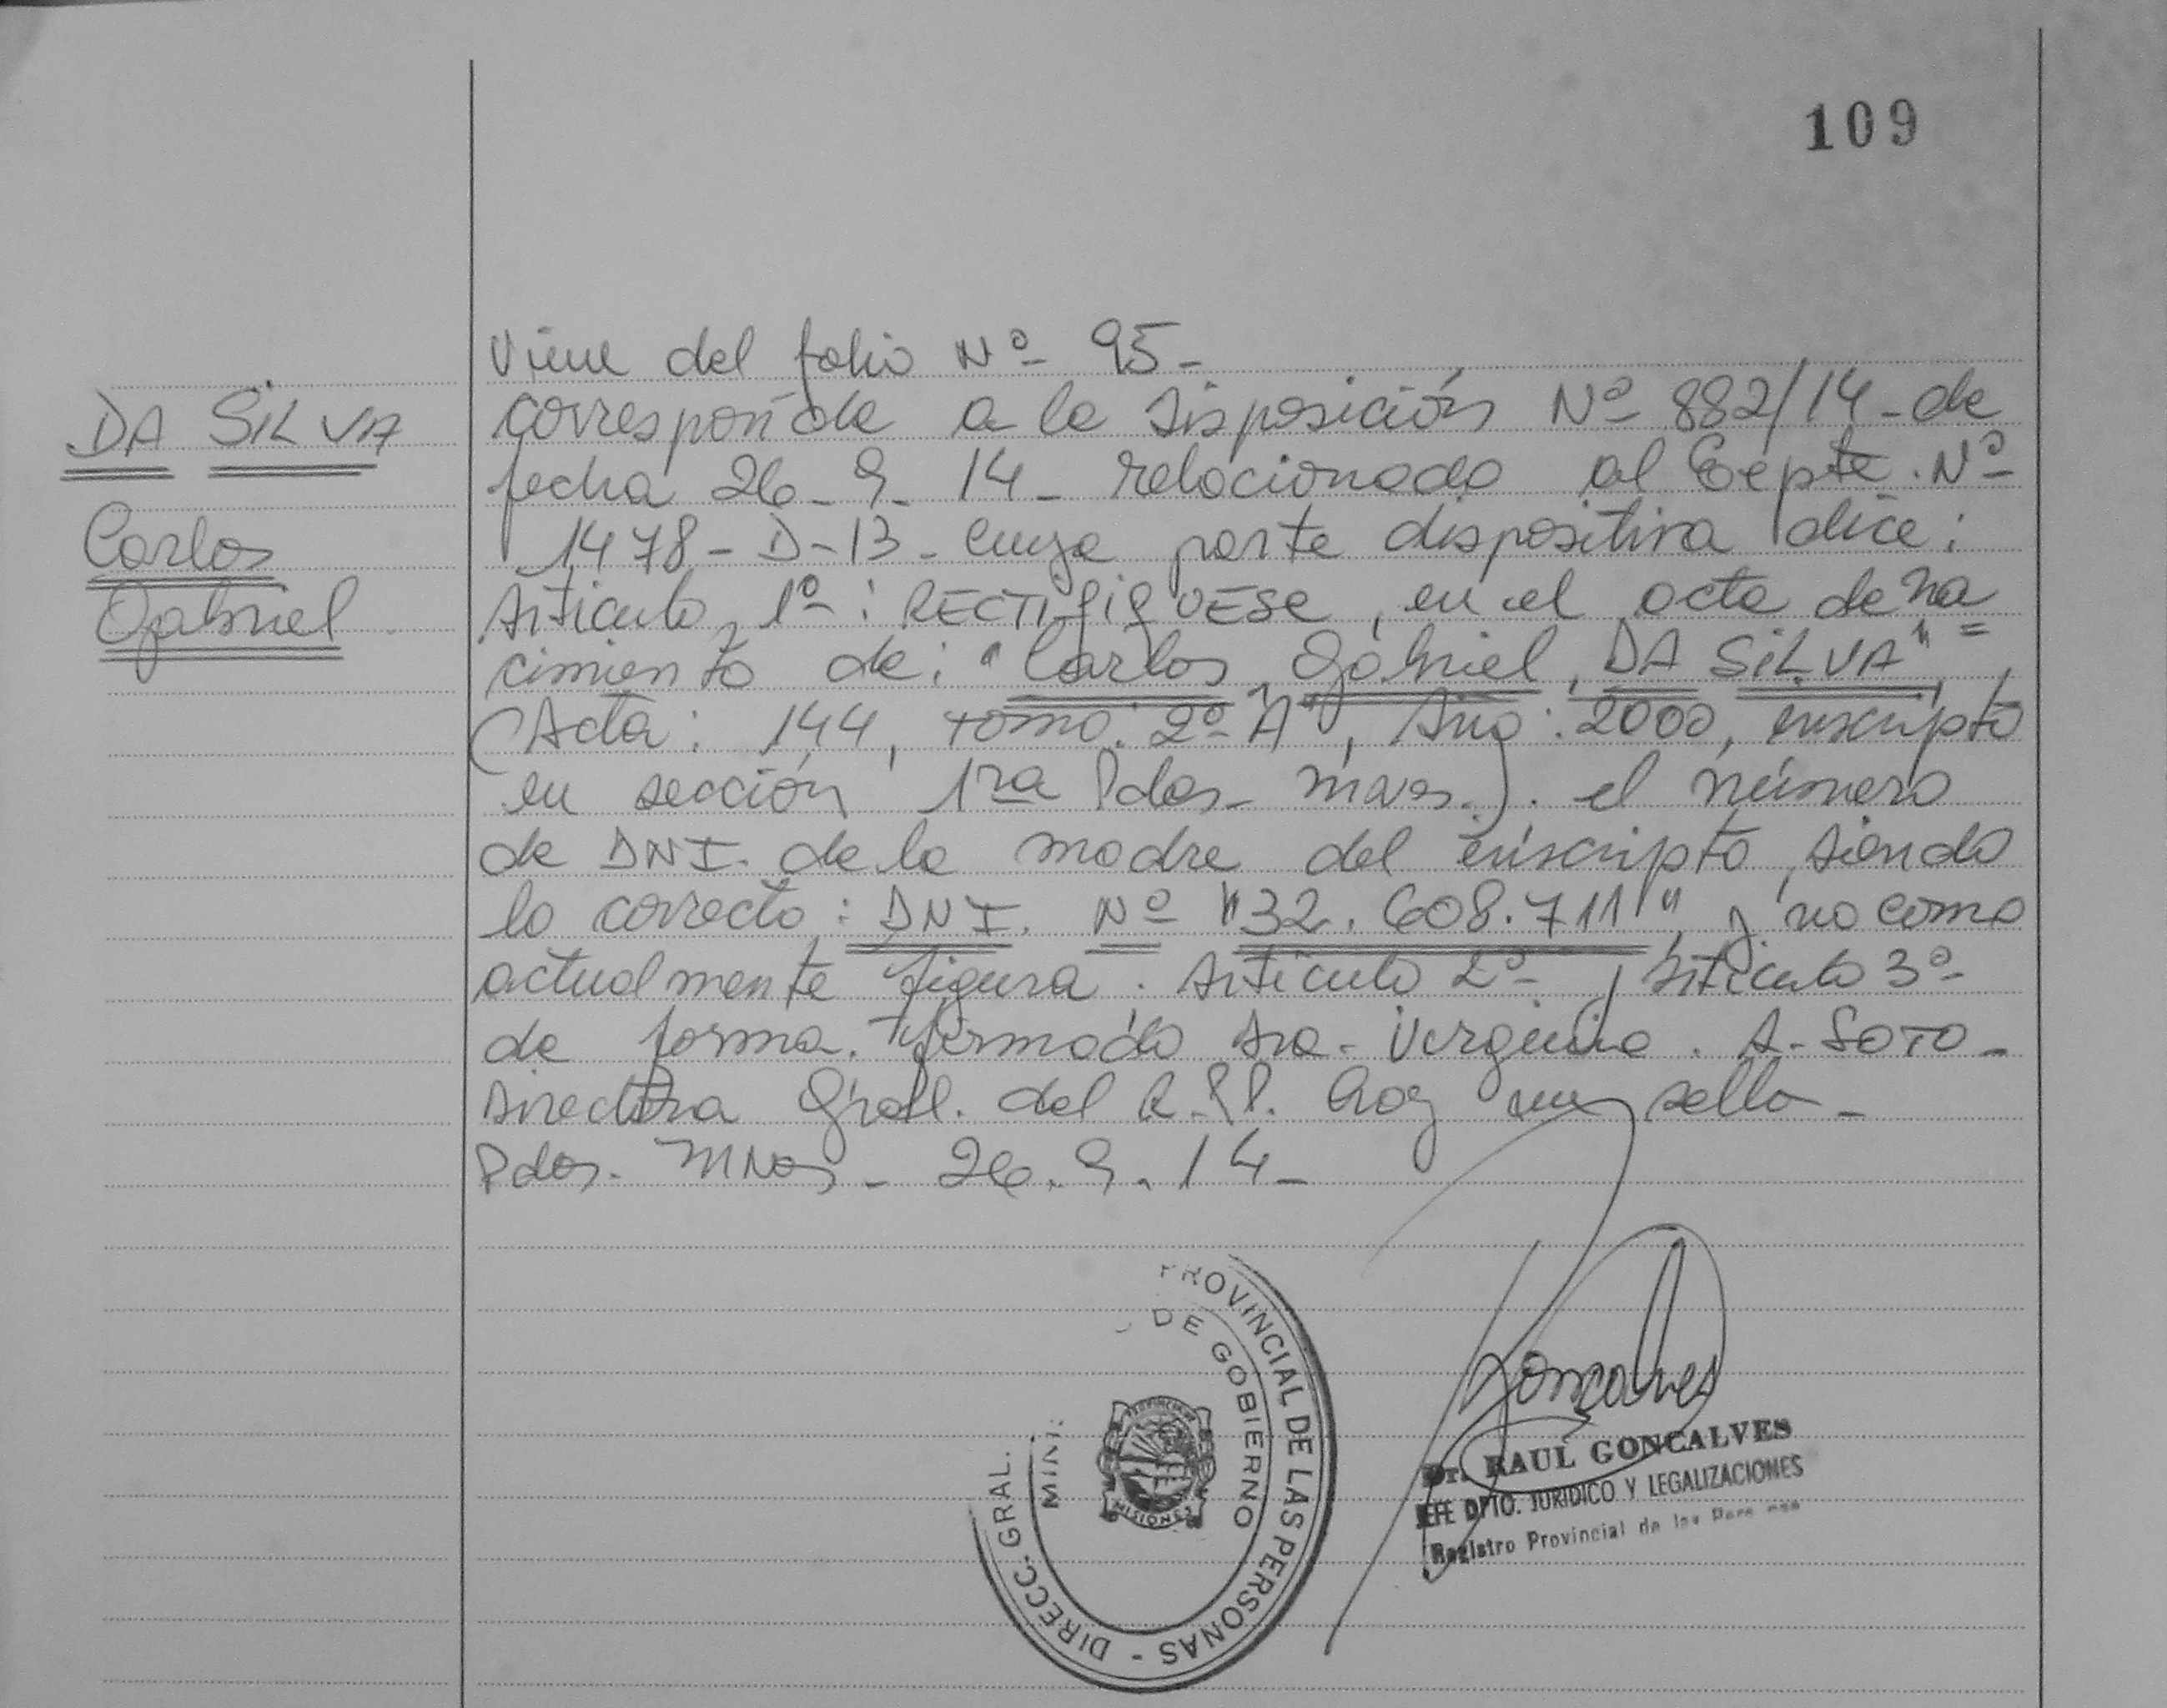 109
DA SILVA
Carlos
Gabriel
Viene del folio Nº 95-
corresponde a la Disposición Nº 882/14-de
fecha 26-9-14- relacionado al Expte. Nº
1478-D-13- cuya parte dispositiva dice:
Articulo 1º: RECTIFIQUESE, en el acta de na=
cimiento de: "Carlos Gabriel, DA SILVA",
(Acta: 144, tomo: 2º "A", Año: 2000, inscripto
en sección 1ra Pdas- mnes.). el número
de DNI. de la madre del inscripto, siendo
lo correcto: DNI. Nº "32.608.711" y no como
actualmente figura. Articulo 2º y Articulo 3º
de forma. firmado Dra. Virginia. A. SOTO-
Directora Gral. del R.P.P. hay un sello-
Pdas. Mnes- 26.9.14-
PROVINCIAL DE LAS PERSONAS - DIRECC. GRAL.
MINI. DE GOBIERNO
MISIONES
Goncalves
Dr. RAUL GONCALVES
JEFE DPTO. JURIDICO Y LEGALIZACIONES
Registro Provincial de las Personas